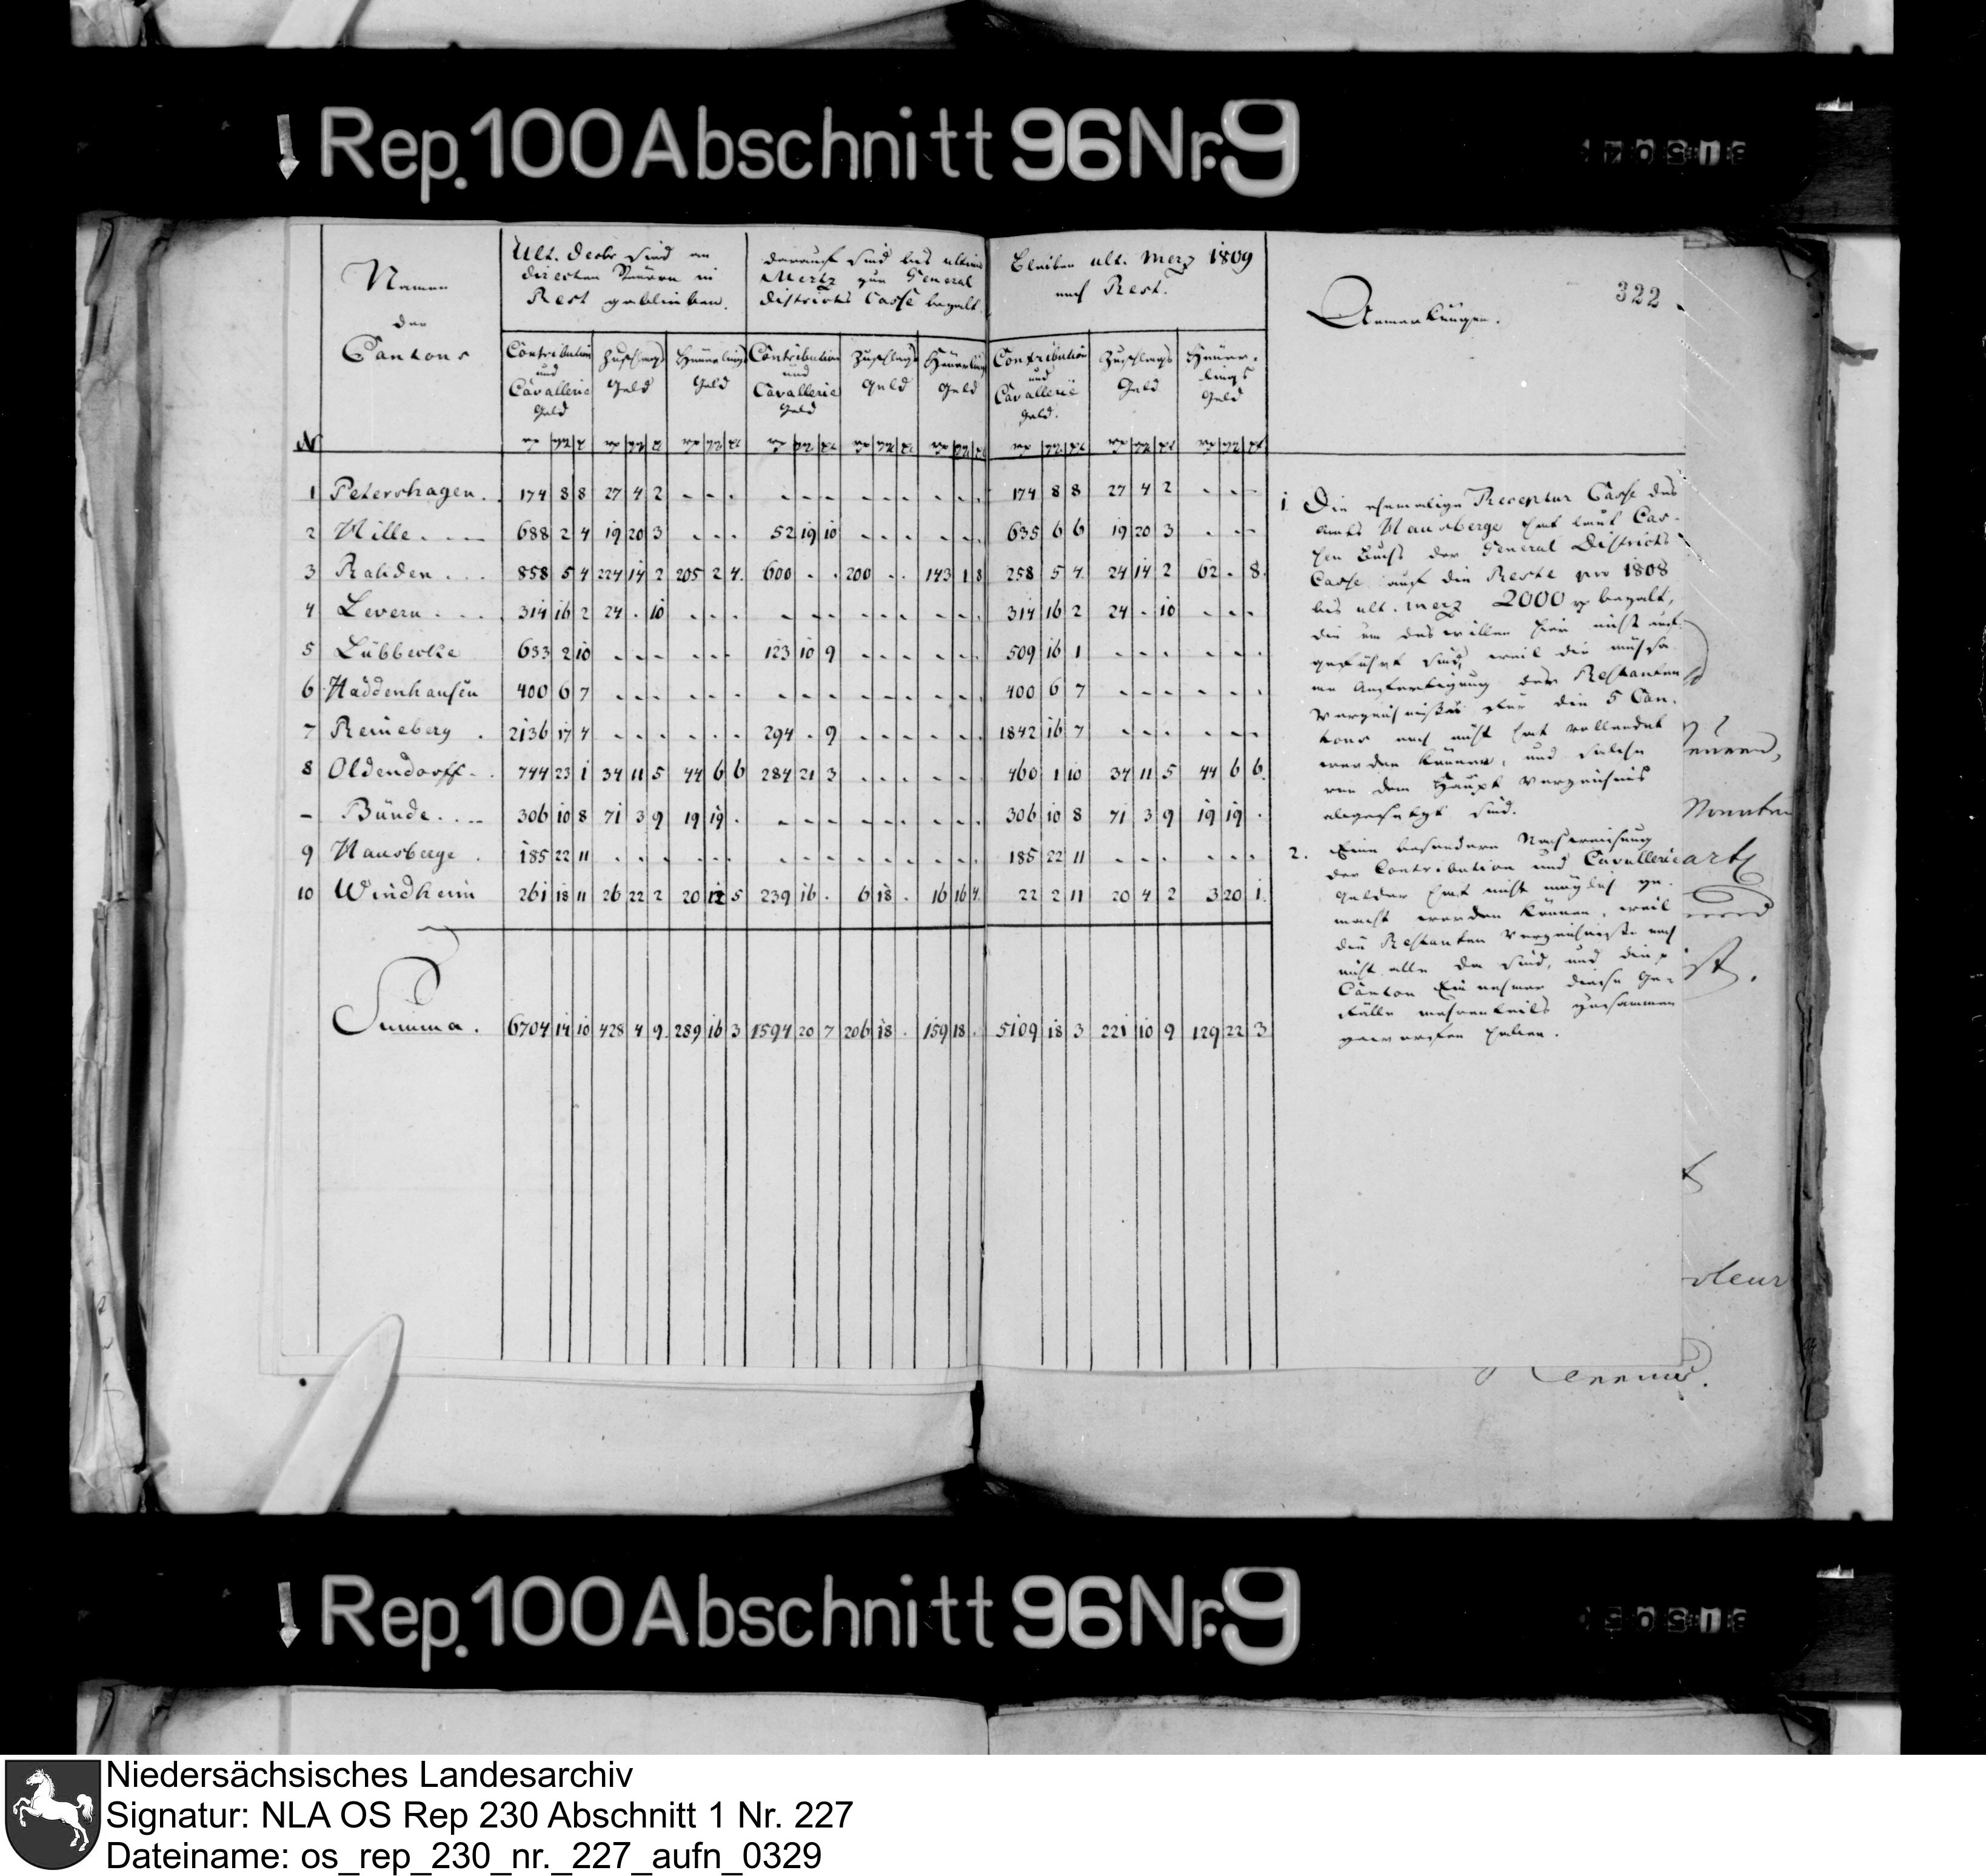 Rep. 100 Abschnitt 96 Nr. 9
322
No
Namen
der
Cantons
Ult. Decbr sind an
directen Steuern in
Rest geblieben.
darauf sind bis ultimo
Mertz zur General
Districts Casse bezalt.
Bleiben ult. Merz 1809
noch Rest.
Anmerkungen.
Contribution und Cavallerie Geld
Zuschlags Geld
Heuerlings Geld
Contribution und Cavallerie Geld
Zuschlags Geld
Heuerlings Geld
Contribution und Cavallerie Geld.
Zuschlags Geld
Heuerlings Geld
1 Petershagen. 174 8 8 27 4 2 - - - - - - - - - - - - 174 8 8 27 4 2 - - -
2 Hille 688 2 4 19 20 3 - - - 52 19 10 - - - - - - 635 6 6 19 20 3 - - -
3 Rahden 858 5 4 224 14 2 205 2 4 600 - - 200 - - 143 1 8 258 5 4 24 14 2 62 - 8
4 Levern 314 16 2 24 - 10 - - - - - - - - - - - - 314 16 2 24 - 10 - - -
5 Lübbecke 633 2 10 - - - - - - 123 10 9 - - - - - - 509 16 1 - - - - - -
6 Haddenhausen 400 6 7 - - - - - - - - - - - - - - - 400 6 7 - - - - - -
7 Reineberg 2136 17 4 - - - - - - 294 - 9 - - - - - - 1842 16 7 - - - - - -
8 Oldendorff 744 23 1 34 11 5 44 6 6 284 21 3 - - - - - - 460 1 10 34 11 5 44 6 6
- Bünde 306 10 8 71 3 9 19 19 - - - - - - - - - - 306 10 8 71 3 9 19 19 -
9 Hausberge 185 22 11 - - - - - - - - - - - - - - - 185 22 11 - - - - - -
10 Windheim 261 18 11 26 22 2 20 12 5 239 16 - 6 18 - 16 16 4 22 2 11 20 4 2 3 20 1
Summa. 6704 14 10 428 4 9 289 16 3 1594 20 7 206 18 - 159 18 - 5109 18 3 221 10 9 129 22 3
1 Die ehemalige Receptur Casse des
Amts Hausberge hat laut Cas-
sen Buchs der General Districts
Casse auf die Reste pro 1808
bis ult. Merz 2000 rp bezalt,
die um deswillen hier nicht auf-
geführt sind, weil die mühsa-
me Anfertigung der Restanten
Verzeichnisse für die 5 Can-
tons noch nicht hat vollendet
werden können, und solche
von dem Haupt Verzeichnis
abgesetzt sind.
2. Eine besondere Nachweisung
der Contribution und Cavallerie
Gelder hat nicht möglich ge-
macht werden können, weil
die Restanten Verzeichnisse noch
nicht alle da sind, und die
Canton Einnehmer diese Ge-
fälle mehrentheils zusammen
geworfen haben.
Rep. 100 Abschnitt 96 Nr. 9
Niedersächsisches Landesarchiv
Signatur: NLA OS Rep 230 Abschnitt 1 Nr. 227
Dateiname: os_rep_230_nr._227_aufn_0329